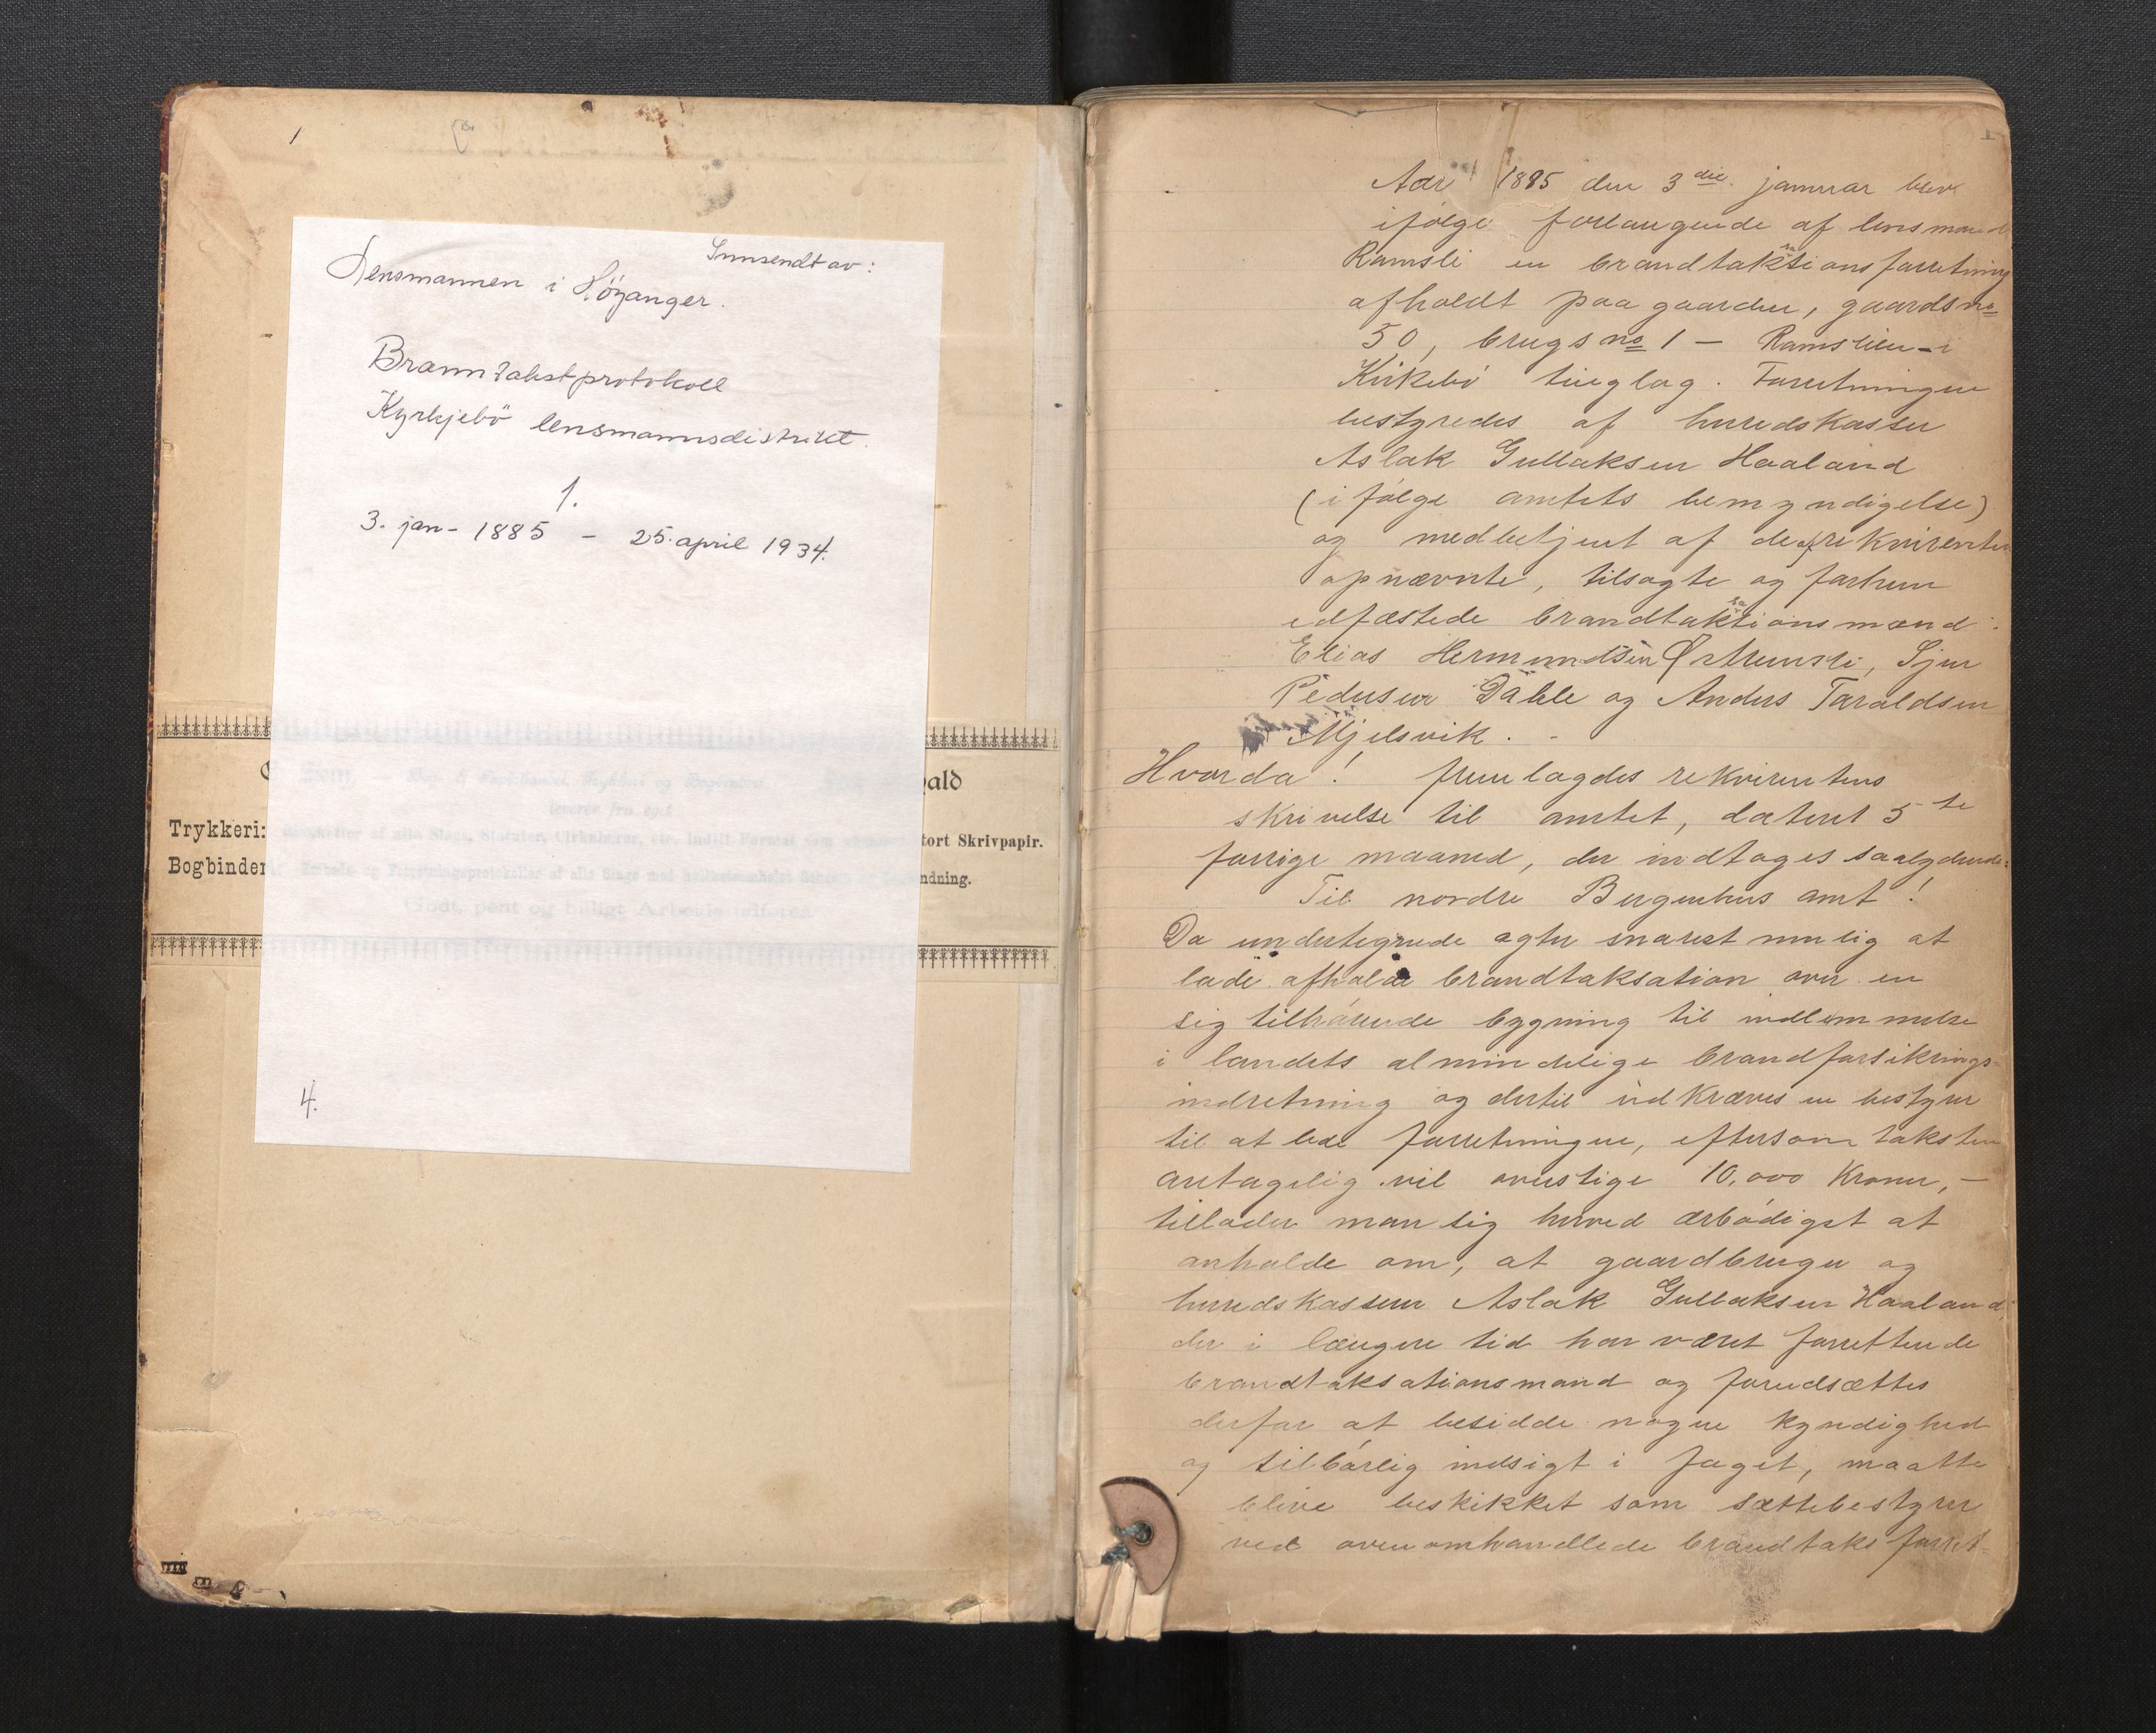 1
Innsendt av:
Lensmannen i Høyanger.
Branntakstprotokoll
Kyrkjebö lensmannsdistrikt.
1.
3. jan - 1885 - 25. april 1934.
4.
ald
Trykkeri:
tort Skrivpapir.
Bogbinder
ndning.
Godt, pent og billigt Arbeide udføres
Aar 1885 den 3die januar blev
ifølge forlangende af lensmand
Ramsli en brandtaksationsforretning
afholdt paa gaarden, gaardsno
50, brugsno 1 — Ramslien — i
Kirkebø tinglag. Forretningen
bestyredes af herredskasser
Aslak Gullaksen Haaland
(ifølge amtets bemyndigelse)
og medbetjent af de af rekvirenten
opnævnte, tilsagte og forhen
edfæstede brandtaksationsmænd.
Elias Hermundsen Østrunsli, Sjur
Pedersen Dahle og Anders Taraldsen
Mjelsvik.
Hvorda! fremlagdes rekvirentens
skrivelse til amtet, dateret 5te
forrige maaned, der indtages saalydende:
Til nordre Bergenhus amt!
Da undertegnede agter snarest mulig at
lade afholde brandtaksation over en
sig tilhørende bygning til indlemmelse
i landets almindelige brandforsikrings-
indretning og dertil udkræves en bestyrer
til at lede forretningen, eftersom taksten
antagelig vil overstige 10,000 Kroner, —
tillader man sig herved ærbødigst at
anholde om, at gaardbruger og
herredskasserer Aslak Gullaksen Haaland,
der i længere tid har været forrettende
brandtaksationsmand og forudsættes
derfor at besidde nogen kyndighed
og tilbørlig indsigt i faget, maatte
blive beskikket som sættebestyrer
ved ovenomhandlede brandtaksforret-